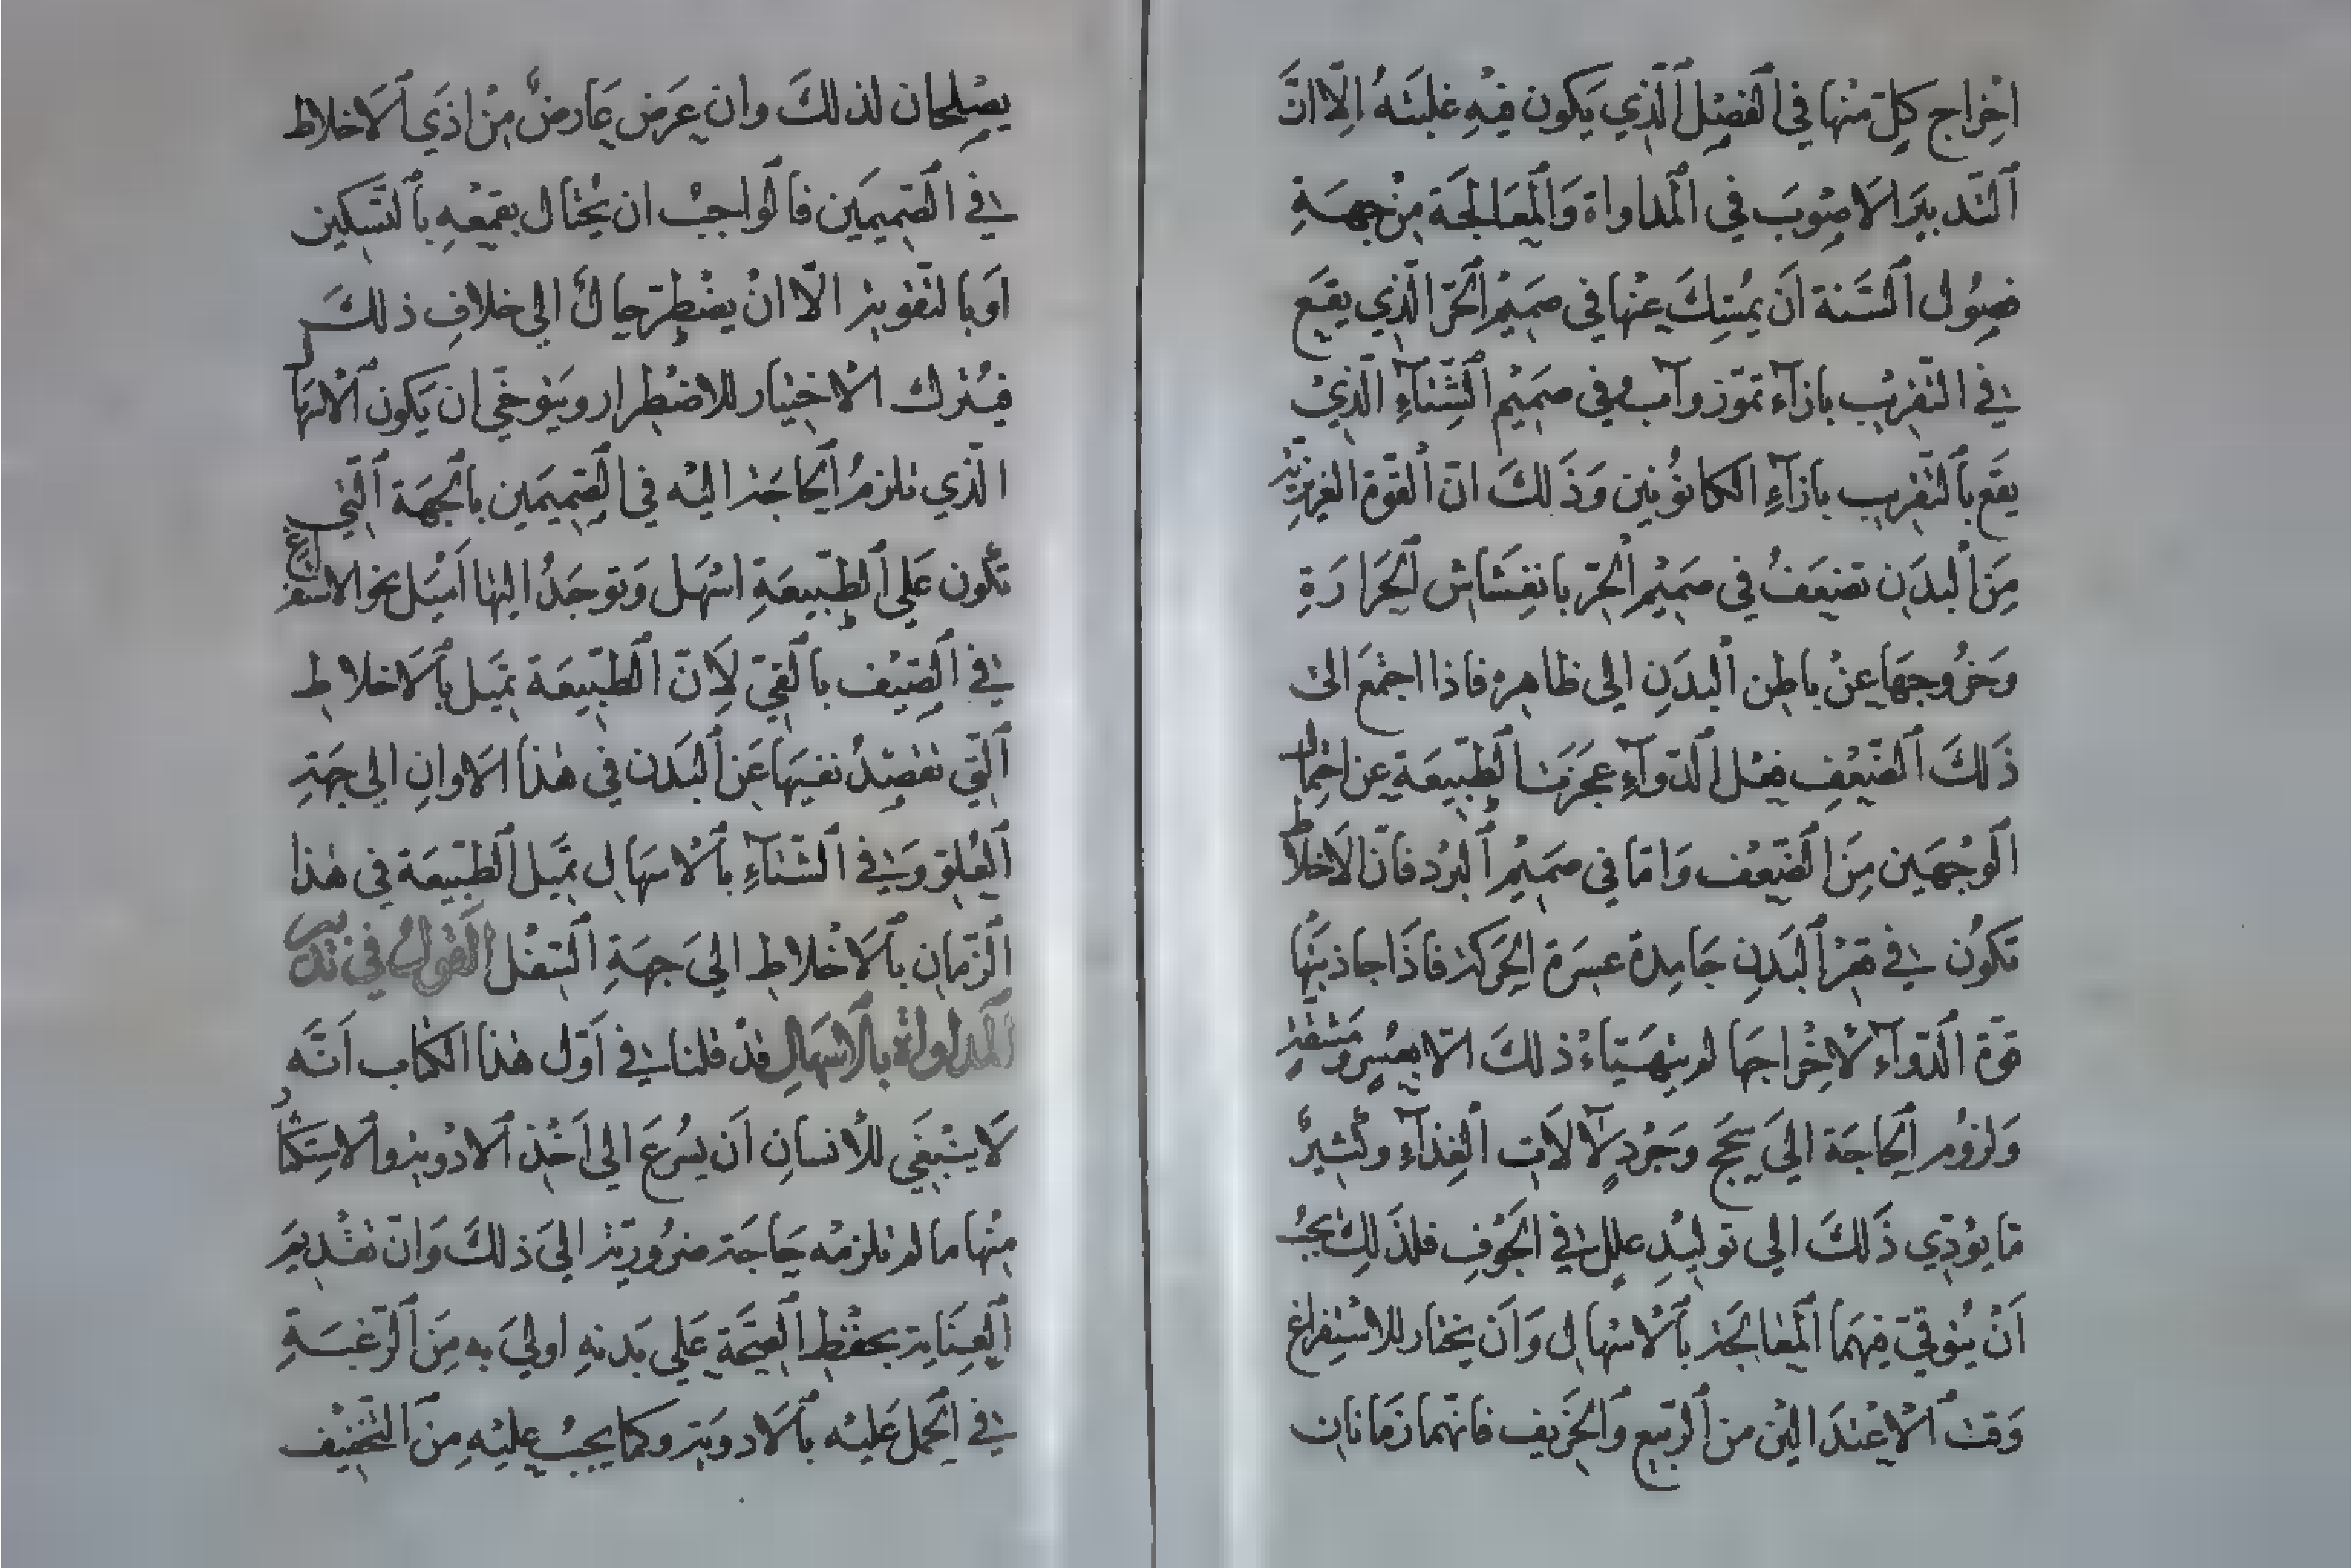 اخْراج كلّ منْها في الفصْل الّذي يَكون فيْهِ غلبَتهُ اِلّا انَّ
التّدبيَر الاَصْوبَ في المداواة وَالمعَالجَة مِنْ جهَةِ
فصُول السَّنة اَن يمُسِكَ عنْها في صَميْم الحَرّ الّذي يقَع
في التّقريْب بازآء تموّز وآب وفي صَميْم الشّتآءِ الّذيْ
يقَع بالتّقريب بازآءِ الكانوُنين وَذَلكَ انّ القوّة الغريزيّة
مِنَ البدَن تضعَفُ في صَميْم الحرّ بانفِشَاش الحَرارَةِ
وَخرُوجهَا عنْ باطِن البدَنِ الى ظاهره فاذا اجتمَعَ الىْ
ذَلكَ الضّعْفِ فعْل الدّوآءِ عجَزَت الطّبيعَة عن احْتمال
الوجْهَين مِنَ الضّعْف وَامّا في صَميْم البرْد فانّ الاَخلاط
تكوُن في قعْر البَدنِ جَامِدة عسِرَة الحَركة فاذَا جاذبَتْها
قوّة الدّوآء لاِخْراجهَا لم يتهَيّاءْ ذلكَ الّا بعُسرٍ ومَشقّةٍ
وَلزوُم الحَاجَة الىَ سحَج وَجرْدٍ لآلاَت الغِذآءِ وكثيرًْ
مّا يؤدّي ذَلكَ الى توليْدِ عللٍ في الجَوْفِ فلذَلك يجبُ
اَنْ يُتوقّىَ فيهَما المعالجَة بالاسْهال وَاَن يختار للاسْتِفراغ
وَقت الاعْتدَالين من الرّبيع وَالخَريف فانّهما زمَانان
يصْلحان لذلكَ وان عَرَض عَارضٌ مِنْ اذَى الاَخلاط
في الصّميمَين فالواجبْ ان يُحتال بقمْعهِ بالتّسكين
اوَبالتّقويَة الّا انْ يضْطرّ حالٌ الى خلافِ ذلكَ
فيُترك الاخْتيار للاضْطرار ويَتوَخّى ان يَكون الانتهَا
الّذي تلزمُ الحَاجَة اليْه في الصّميمَين بالجهَة الّتي
تكون عَلى الطّبيعَةِ اسْهَل وَتوجَدُ اليْها اَميْل نحَو الاستفراغ
في الصّيْف بالقيّ لِاَنّ الطّبيعَة تميَل بالاَخلاط
الّتي تقصْدُ نفيَهَا عَن البَدن في هٰذا الاَوانِ الى جهَةِ
العُلوّ وَفي الشّتآءِ بالاسْهَال تميَل الطّبيعَة في هٰذا
الزّمان بالاَخْلاط الىَ جهَةِ السّفْل القولُ في تدبير
المداواة بالاسْهَالِ قدْ قلنا في اَوّل هٰذا الكتاب اَنَّه
لَا ينْبغَي للاْنسان اَن يسُرعَ الى اَخْذ الادْوية والاستِكثار
منْها ما لم تلزمْه حَاجَة ضرُوريّة الىَ ذلكَ وَانّ تقْديمَ
العِنَاية بحفْظ الصّحّة عَلى بَدنهِ اولىَ به مِنَ الرّغبَةِ
في الحَمل عَليْه بالاَدويَة وكما يجبُ عليْه مِنَ التّخفيْف